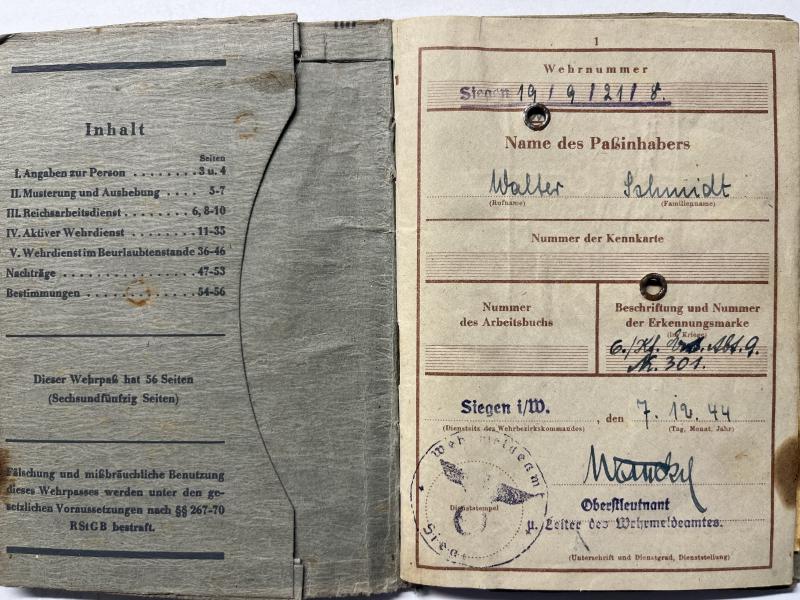 Inhalt
Seiten
I. Angaben zur Person . . . . . . . . 3 u. 4
II. Musterung und Aushebung . . . . 5-7
III. Reichsarbeitsdienst . . . . . . . . 6, 8-10
IV. Aktiver Wehrdienst . . . . . . . . 11-35
V. Wehrdienst im Beurlaubtenstande 36-46
Nachträge . . . . . . . . . . . . . . . 47-53
Bestimmungen . . . . . . . . . . . . 54-56
Dieser Wehrpaß hat 56 Seiten
(Sechsundfünfzig Seiten)
Fälschung und mißbräuchliche Benutzung
dieses Wehrpasses werden unter den ge-
setzlichen Voraussetzungen nach §§ 267-70
RStGB bestraft.
1
Wehrnummer
Siegen 19/9/21/8.
Name des Paßinhabers
Walter Schmidt
(Rufname) (Familienname)
Nummer der Kennkarte
Nummer
des Arbeitsbuchs
Beschriftung und Nummer
der Erkennungsmarke
(im Kriege)
6./Kf. Abt. 9.
Nr. 301.
Siegen i/W. , den 7. 12. 44
(Dienstsitz des Wehrbezirkskommandos) (Tag, Monat, Jahr)
Wehrmeldeamt
Siegen
Dienststempel
Oberstleutnant
u. Leiter des Wehrmeldeamtes.
(Unterschrift und Dienstgrad, Dienststellung)